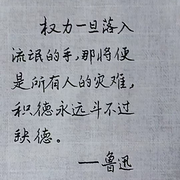 权力一旦落入
流氓的手,那将便
是所有人的灾难,
积德永远斗不过
缺德。
——鲁迅